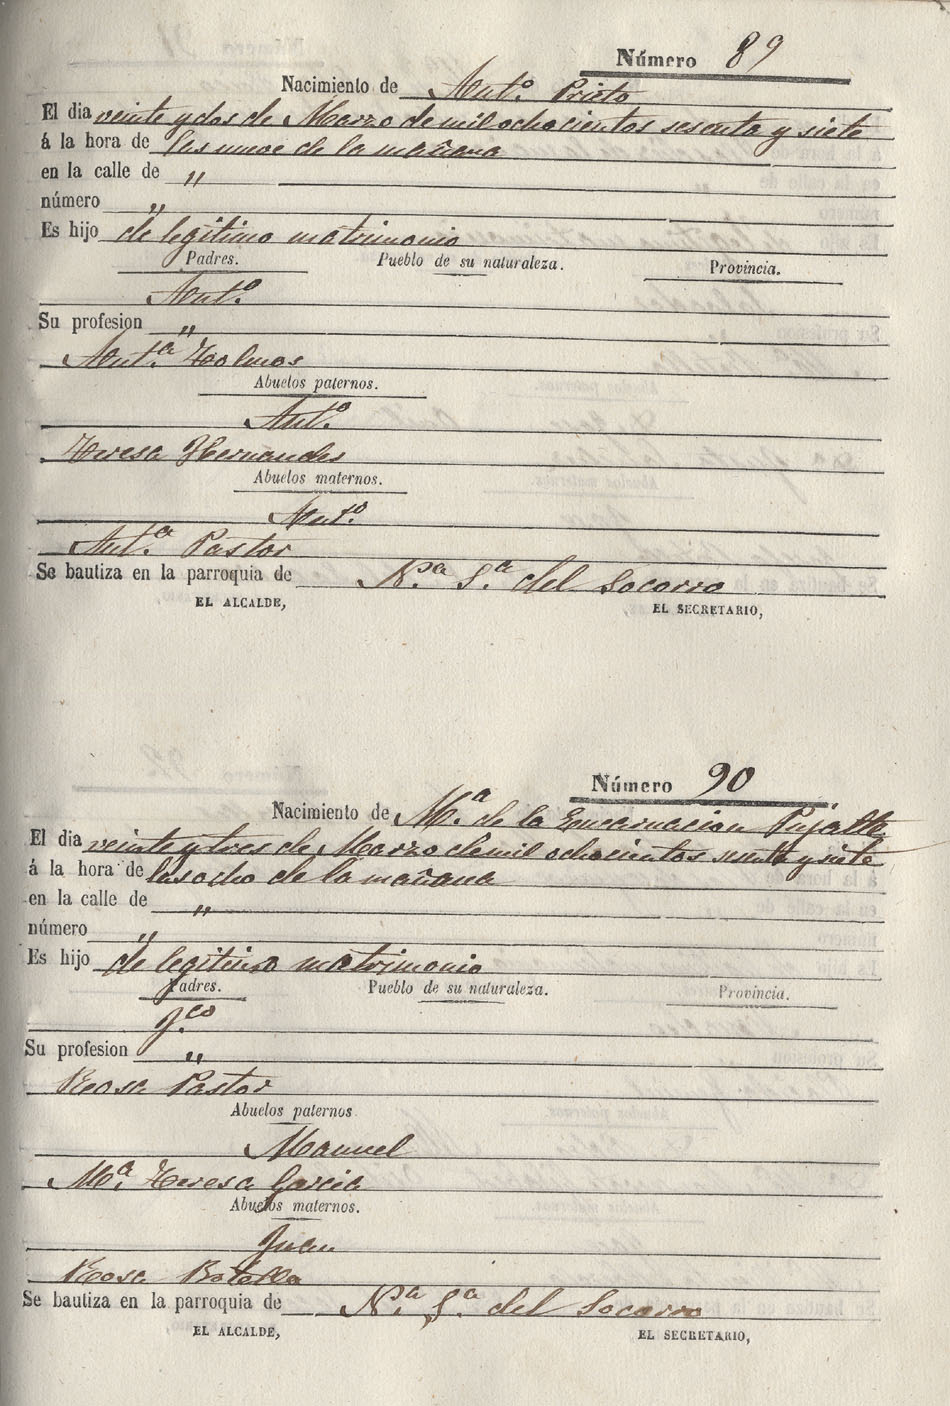 Número 89
Nacimiento de Antº. Prieto
El dia veinte y dos de Marzo de mil ocho cientos sesenta y siete
á la hora de las nueve de la mañana
en la calle de "
número "
Es hijo de legitimo matrimonio
Padres. Pueblo de su naturaleza. Provincia.
Antº.
Su profesion "
Antª. Tolmos
Abuelos paternos.
Antº.
Teresa Hernandes
Abuelos maternos.
Antº.
Antª. Pastor
Se bautiza en la parroquia de Nª. Sª. del Socorro
EL ALCALDE, EL SECRETARIO,
Número 90
Nacimiento de Mª. de la Encarnacion Pujalte
El dia veinte y tres de Marzo de mil ochocientos sesenta y siete
á la hora de las ocho de la mañana
en la calle de "
número "
Es hijo de legitimo matrimonio
Padres. Pueblo de su naturaleza. Provincia.
Fco.
Su profesion "
Rosa Pastor
Abuelos paternos
Manuel
Mª. Teresa Garcia
Abuelos maternos.
Juan
Rosa Botella
Se bautiza en la parroquia de Nª. Sª. del Socorro
EL ALCALDE, EL SECRETARIO,